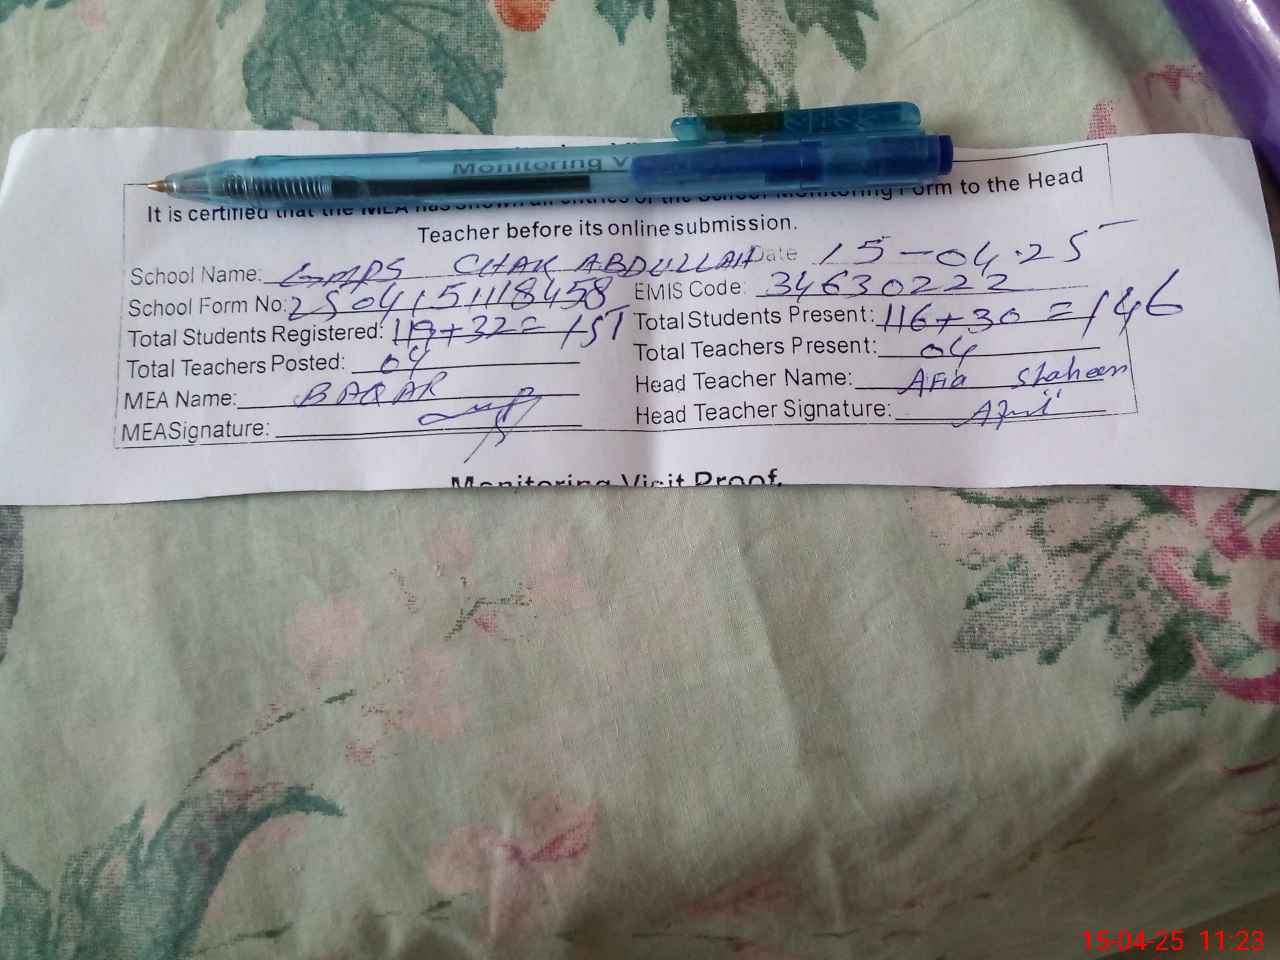 Monitoring V
It is certified that the MEA has shown all entries of the School Monitoring Form to the Head
Teacher before its online submission.
School Name: GMPS CHAK ABDULLAH Date 15-04-25
School Form No: 2504151118458 EMIS Code: 34630222
Total Students Registered: 119+32=151 Total Students Present: 116+30=146
Total Teachers Posted: 04 Total Teachers Present: 04
MEA Name: BAQAR Head Teacher Name: Afia Shaheen
MEASignature: Head Teacher Signature:
Monitoring Visit Proof.
15-04-25 11:23